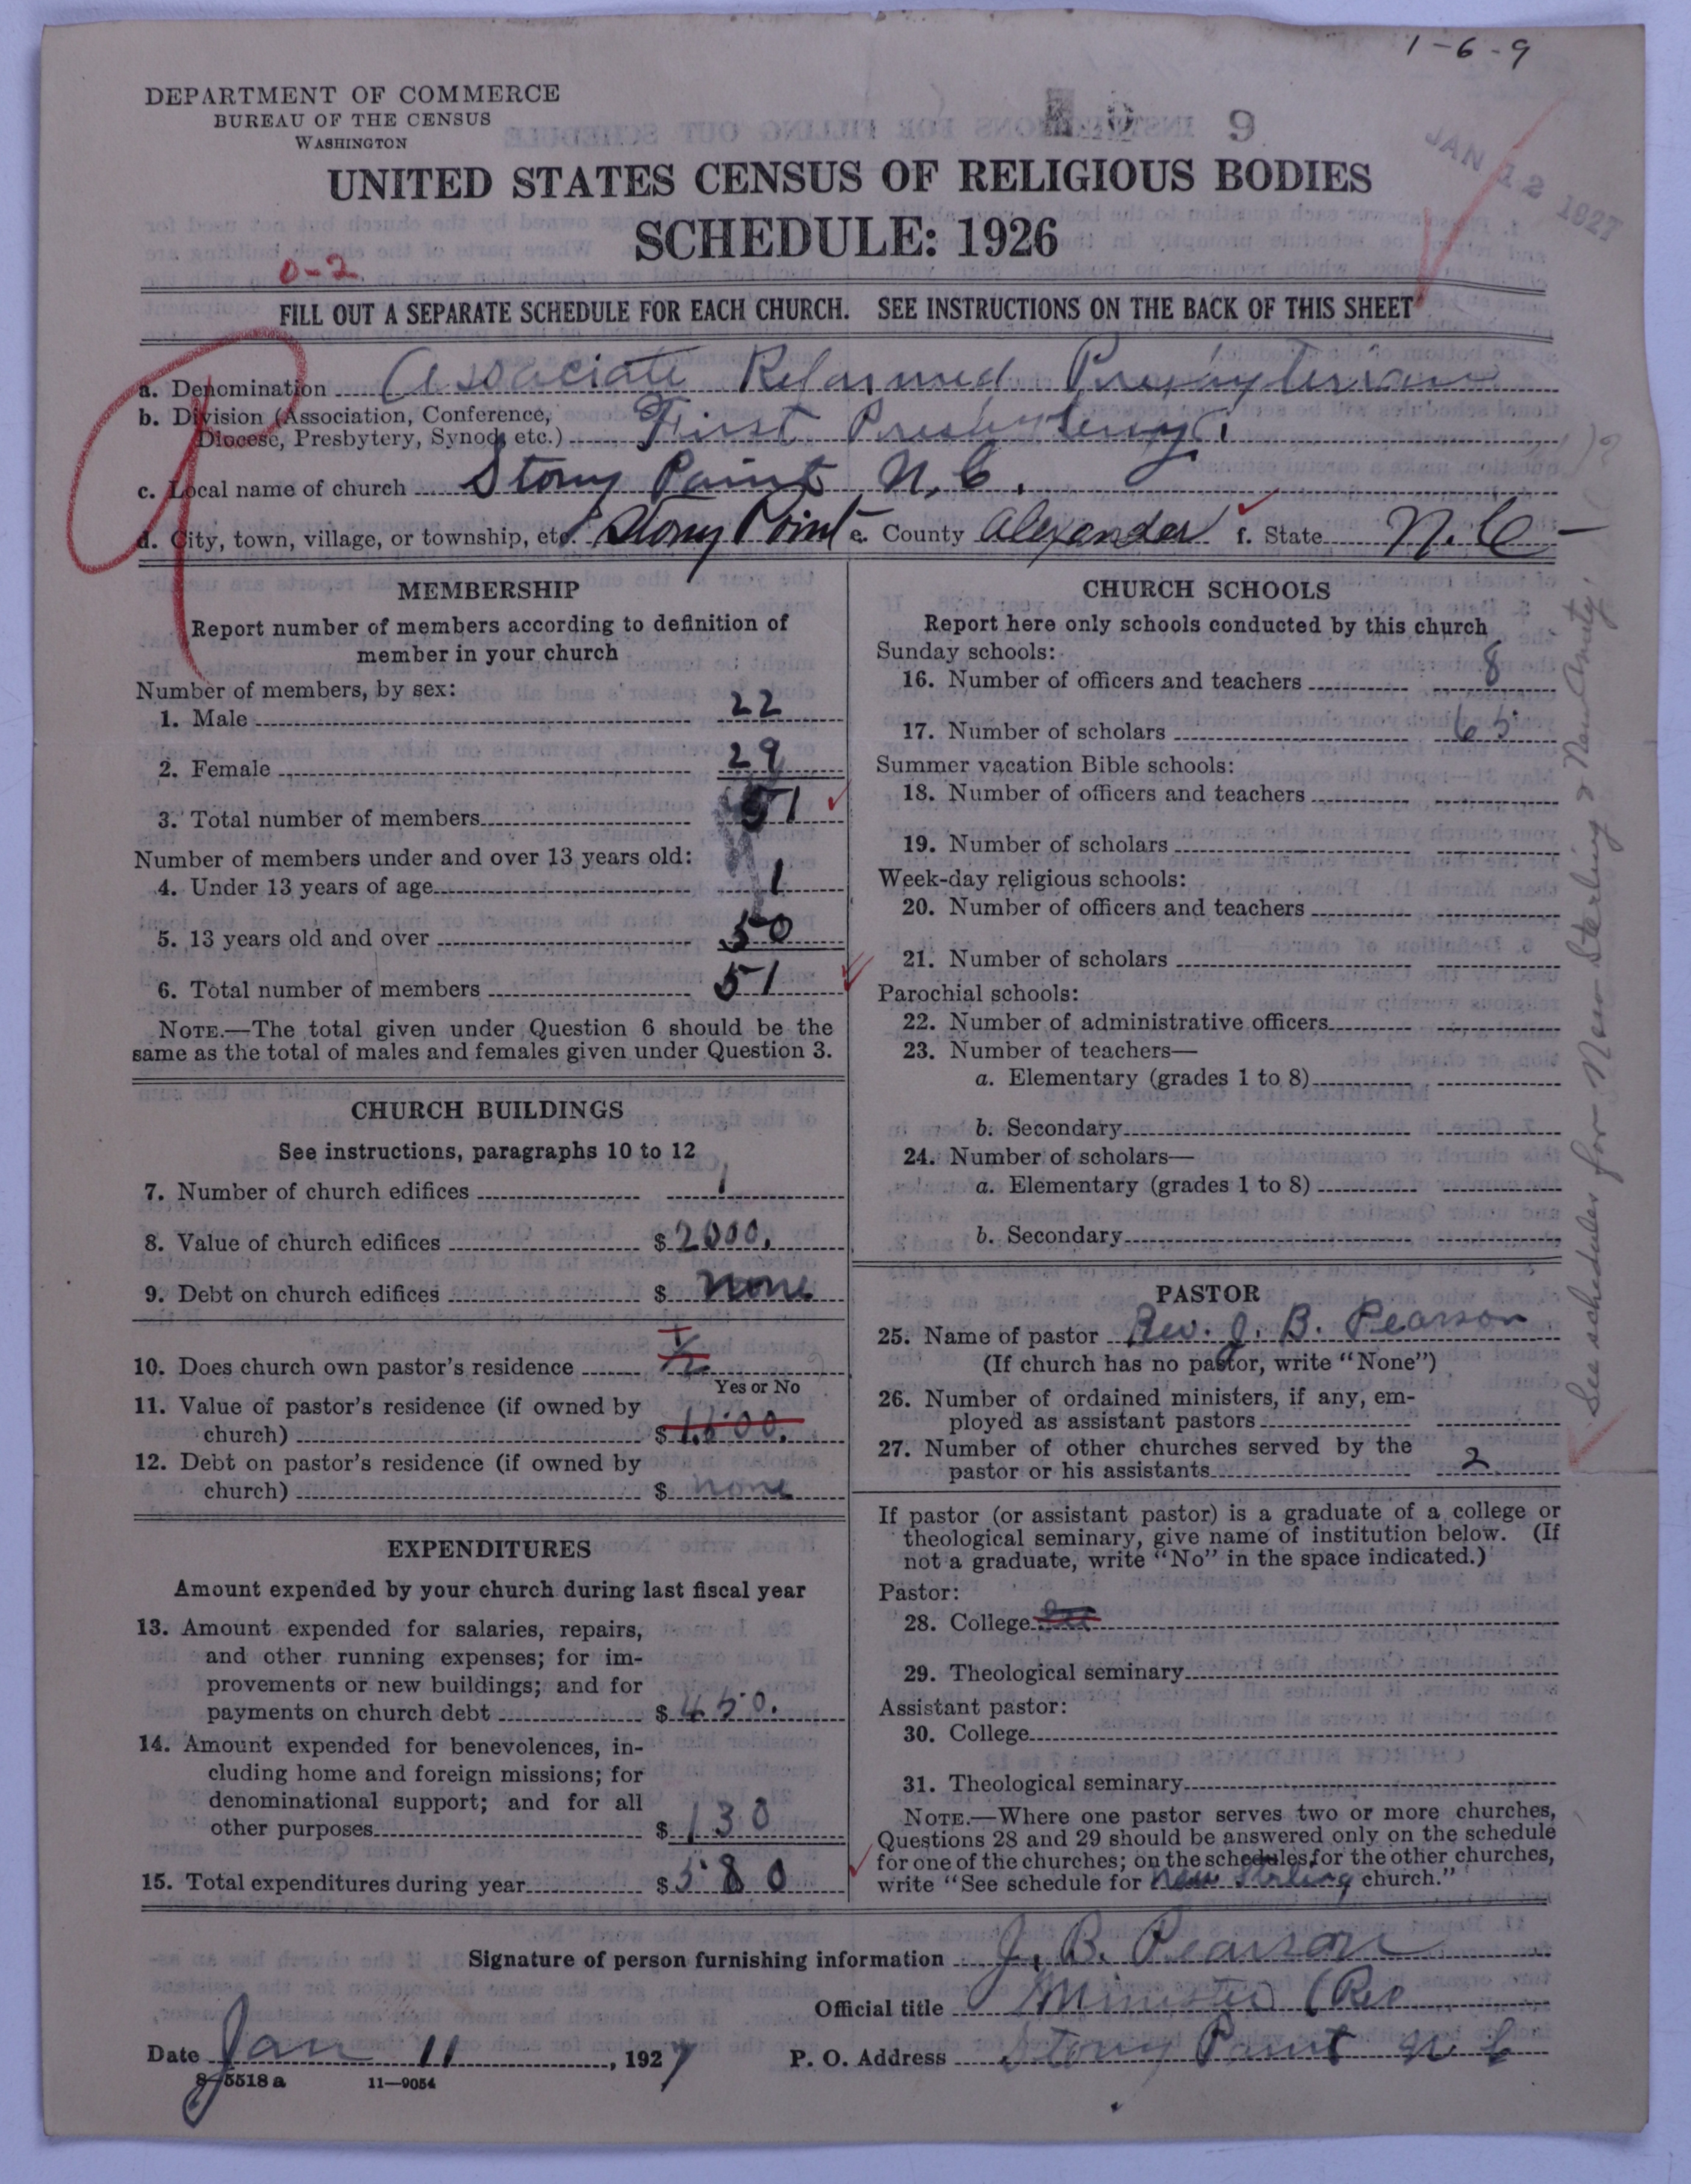 1-6-9
DEPARTMENT OF COMMERCE
BUREAU OF THE CENSUS
WASHINGTON
9
JAN 12 1927
UNITED STATES CENSUS OF RELIGIOUS BODIES
SCHEDULE: 1926
0-2
FILL OUT A SEPARATE SCHEDULE FOR EACH CHURCH. SEE INSTRUCTIONS ON THE BACK OF THIS SHEET
a. Denomination Associate Reformed Presbyterian
b. Division (Association, Conference,
Diocese, Presbytery, Synod, etc.) First Presbytery.
c. Local name of church Stony Point, N.C.
d. City, town, village, or township, etc. Stony Point e. County Alexander f. State N.C
MEMBERSHIP
Report number of members according to definition of
member in your church
Number of members, by sex:
1. Male 22
2. Female 29
3. Total number of members 51
Number of members under and over 13 years old:
4. Under 13 years of age 1
5. 13 years old and over 50
6. Total number of members 51
NOTE.—The total given under Question 6 should be the
same as the total of males and females given under Question 3.
CHURCH BUILDINGS
See instructions, paragraphs 10 to 12
7. Number of church edifices 1
8. Value of church edifices $2000.
9. Debt on church edifices $ none
10. Does church own pastor's residence 1/2
Yes or No
11. Value of pastor's residence (if owned by
church) $
12. Debt on pastor's residence (if owned by
church) $ none
EXPENDITURES
Amount expended by your church during last fiscal year
13. Amount expended for salaries, repairs,
and other running expenses; for im-
provements or new buildings; and for
payments on church debt $ 450.
14. Amount expended for benevolences, in-
cluding home and foreign missions; for
denominational support; and for all
other purposes $ 130
15. Total expenditures during year $ 580
CHURCH SCHOOLS
Report here only schools conducted by this church
Sunday schools:
16. Number of officers and teachers 8
17. Number of scholars 65
Summer vacation Bible schools:
18. Number of officers and teachers
19. Number of scholars
Week-day religious schools:
20. Number of officers and teachers
21. Number of scholars
Parochial schools:
22. Number of administrative officers
23. Number of teachers—
a. Elementary (grades 1 to 8)
b. Secondary
24. Number of scholars—
a. Elementary (grades 1 to 8)
b. Secondary
PASTOR
25. Name of pastor Rev. J. B. Pearson
(If church has no pastor, write "None")
26. Number of ordained ministers, if any, em-
ployed as assistant pastors
27. Number of other churches served by the
pastor or his assistants 2
If pastor (or assistant pastor) is a graduate of a college or
theological seminary, give name of institution below. (If
not a graduate, write "No" in the space indicated.)
Pastor:
28. College
29. Theological seminary
Assistant pastor:
30. College
31. Theological seminary
NOTE.—Where one pastor serves two or more churches,
Questions 28 and 29 should be answered only on the schedule
for one of the churches; on the schedules for the other churches,
write "See schedule for New Sterling church."
See schedules for New Sterling & New Amity.
Signature of person furnishing information J. B. Pearson
Official title Minister (Rev
Date Jan 11, 1927 P. O. Address Stony Point N C
8-5518 a 11—9054